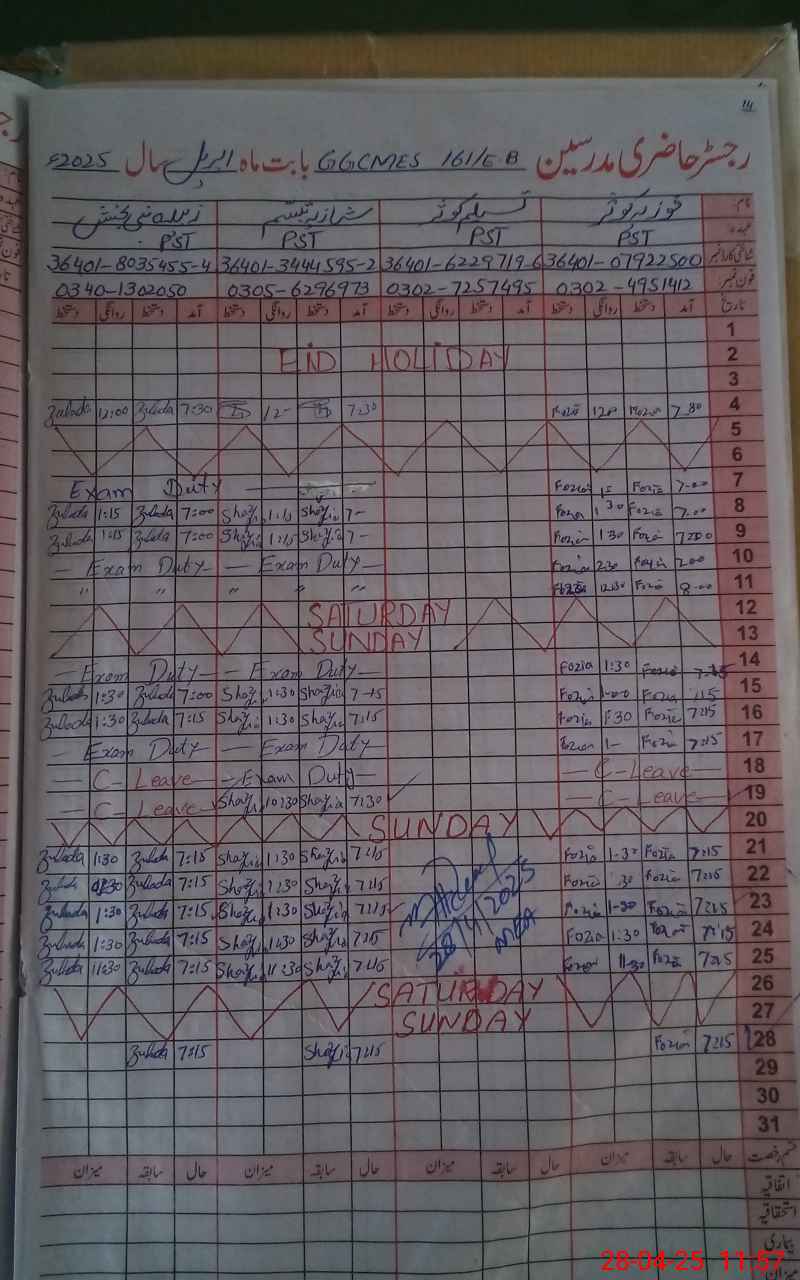 رجسٹر حاضری مدرسین GGCMES 161/E.B بابت ماہ اپریل سال 2025ء
نام: فوزیہ کوثر تسلیم کوثر شازیہ تبسم زبیدہ نبی بخش
عہدہ PST PST PST PST
شناختی کارڈ نمبر 36401-07922500 36401-6229719-6 36401-3444595-2 36401-8035455-4
فون نمبر 0302-4951412 0302-7257495 0305-6296973 0340-1302050
تاریخ آمد دستخط روانگی دستخط آمد دستخط روانگی دستخط آمد دستخط روانگی دستخط آمد دستخط روانگی دستخط
1
EID HOLIDAY 2
3
Zubada 12:00 Zubada 7:30 12- 7:30 7:30 4
5
6
Exam Duty Fozia Fozia 7-00 7
Zubada 1:15 Zubada 7:00 Shazia Shazia 7- Fozia 1 30 Fozia 7.00 8
Zubada 1:15 Zubada 7:00 Shazia 1:15 Shazia 7- Fozia 1 30 Fozia 9
— Exam Duty — Exam Duty — Fozia 10
" " " " " Fozia 12:30 Fozia 8-00 11
SATURDAY 12
SUNDAY 13
— Exam Duty — Exam Duty — Fozia 1:30 Fozia 14
Zubada 1:30 Zubada 7:00 Shazia 1:30 Shazia 7-15 Fozia Fozia 7:15 15
Zubada 1:30 Zubada 7:15 Shazia 1:30 Shazia 7:15 Fozia 1:30 Fozia 7:15 16
— Exam Duty — Exam Duty — Fozia 1- Fozia 7:15 17
— C-Leave — Exam Duty — — C-Leave — 18
— C-Leave — Shazia 10:30 Shazia 7:30 — C-Leave — 19
SUNDAY 20
Zubada 1:30 Zubada 7:15 Shazia 1:30 Shazia 7:15 Fozia 1-30 Fozia 7:15 21
Zubada 1:30 Zubada 7:15 Shazia 1:30 Shazia 7:15 Fozia 30 Fozia 7:15 22
Zubada 1:30 Zubada 7:15 Shazia 1:30 Shazia 7:15 Fozia 1-30 Fozia 7:15 23
Zubada 1:30 Zubada 7:15 Shazia 1:30 Shazia 7:15 Fozia 1:30 Fozia 7:15 24
Zubada 11:30 Zubada 7:15 Shazia 11:30 Shazia 7:15 Fozia 11-30 Fozia 7:15 25
28/4/2025
MEA
SATURDAY 26
SUNDAY 27
Zubada 7:15 Shazia 7:15 Fozia 7:15 28
29
30
31
قسم رخصت حال سابقہ میزان حال سابقہ میزان حال سابقہ میزان حال سابقہ میزان
اتفاقیہ
استحقاقیہ
بیماری
میزان
28-04-25 11:57